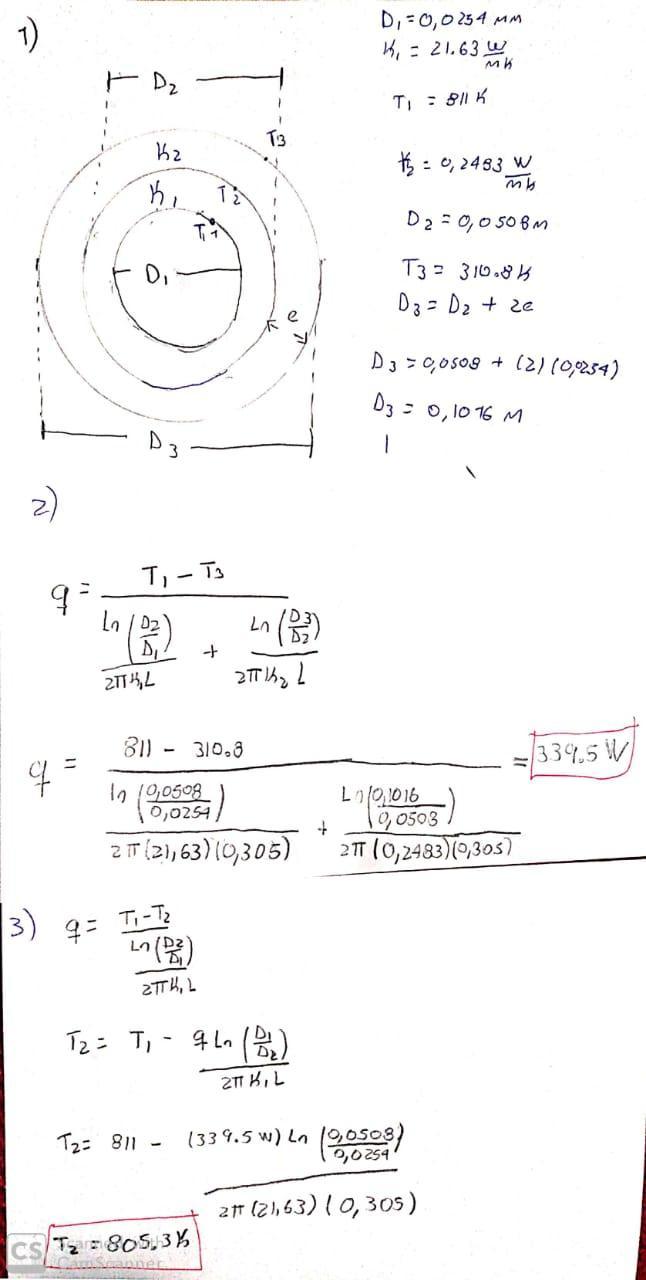 1)
D₁ = 0,0254 mm
K₁ = 21.63 W/mK
T₁ = 811 K
K₂ = 0,2483 W/mK
D₂ = 0,0508 m
T3 = 310.8 K
D₃ = D₂ + 2e
D₃ = 0,0508 + (2)(0,0254)
D₃ = 0,1016 M
D₂
T3
K₂
K₁ T₂
T₁
D₁
e
D₃
2)
q = (T₁ - T₃) / (Ln(D₂/D₁)/(2πK₁L) + Ln(D3/D₂)/(2πK₂L))
q = (811 - 310.8) / (ln(0,0508/0,0254)/(2π(21,63)(0,305)) + Ln(0,1016/0,0508)/(2π(0,2483)(0,305))) = 339,5 W
3) q = (T₁-T₂) / (Ln(D₂/D₁)/(2πK₁L))
T₂ = T₁ - q Ln(D₁/D₂)/(2πK₁L)
T₂ = 811 - (339.5 W) Ln(0,0508/0,0254)/(2π(21,63)(0,305))
T₂ = 805,3 K
CS Scanned with
CamScanner